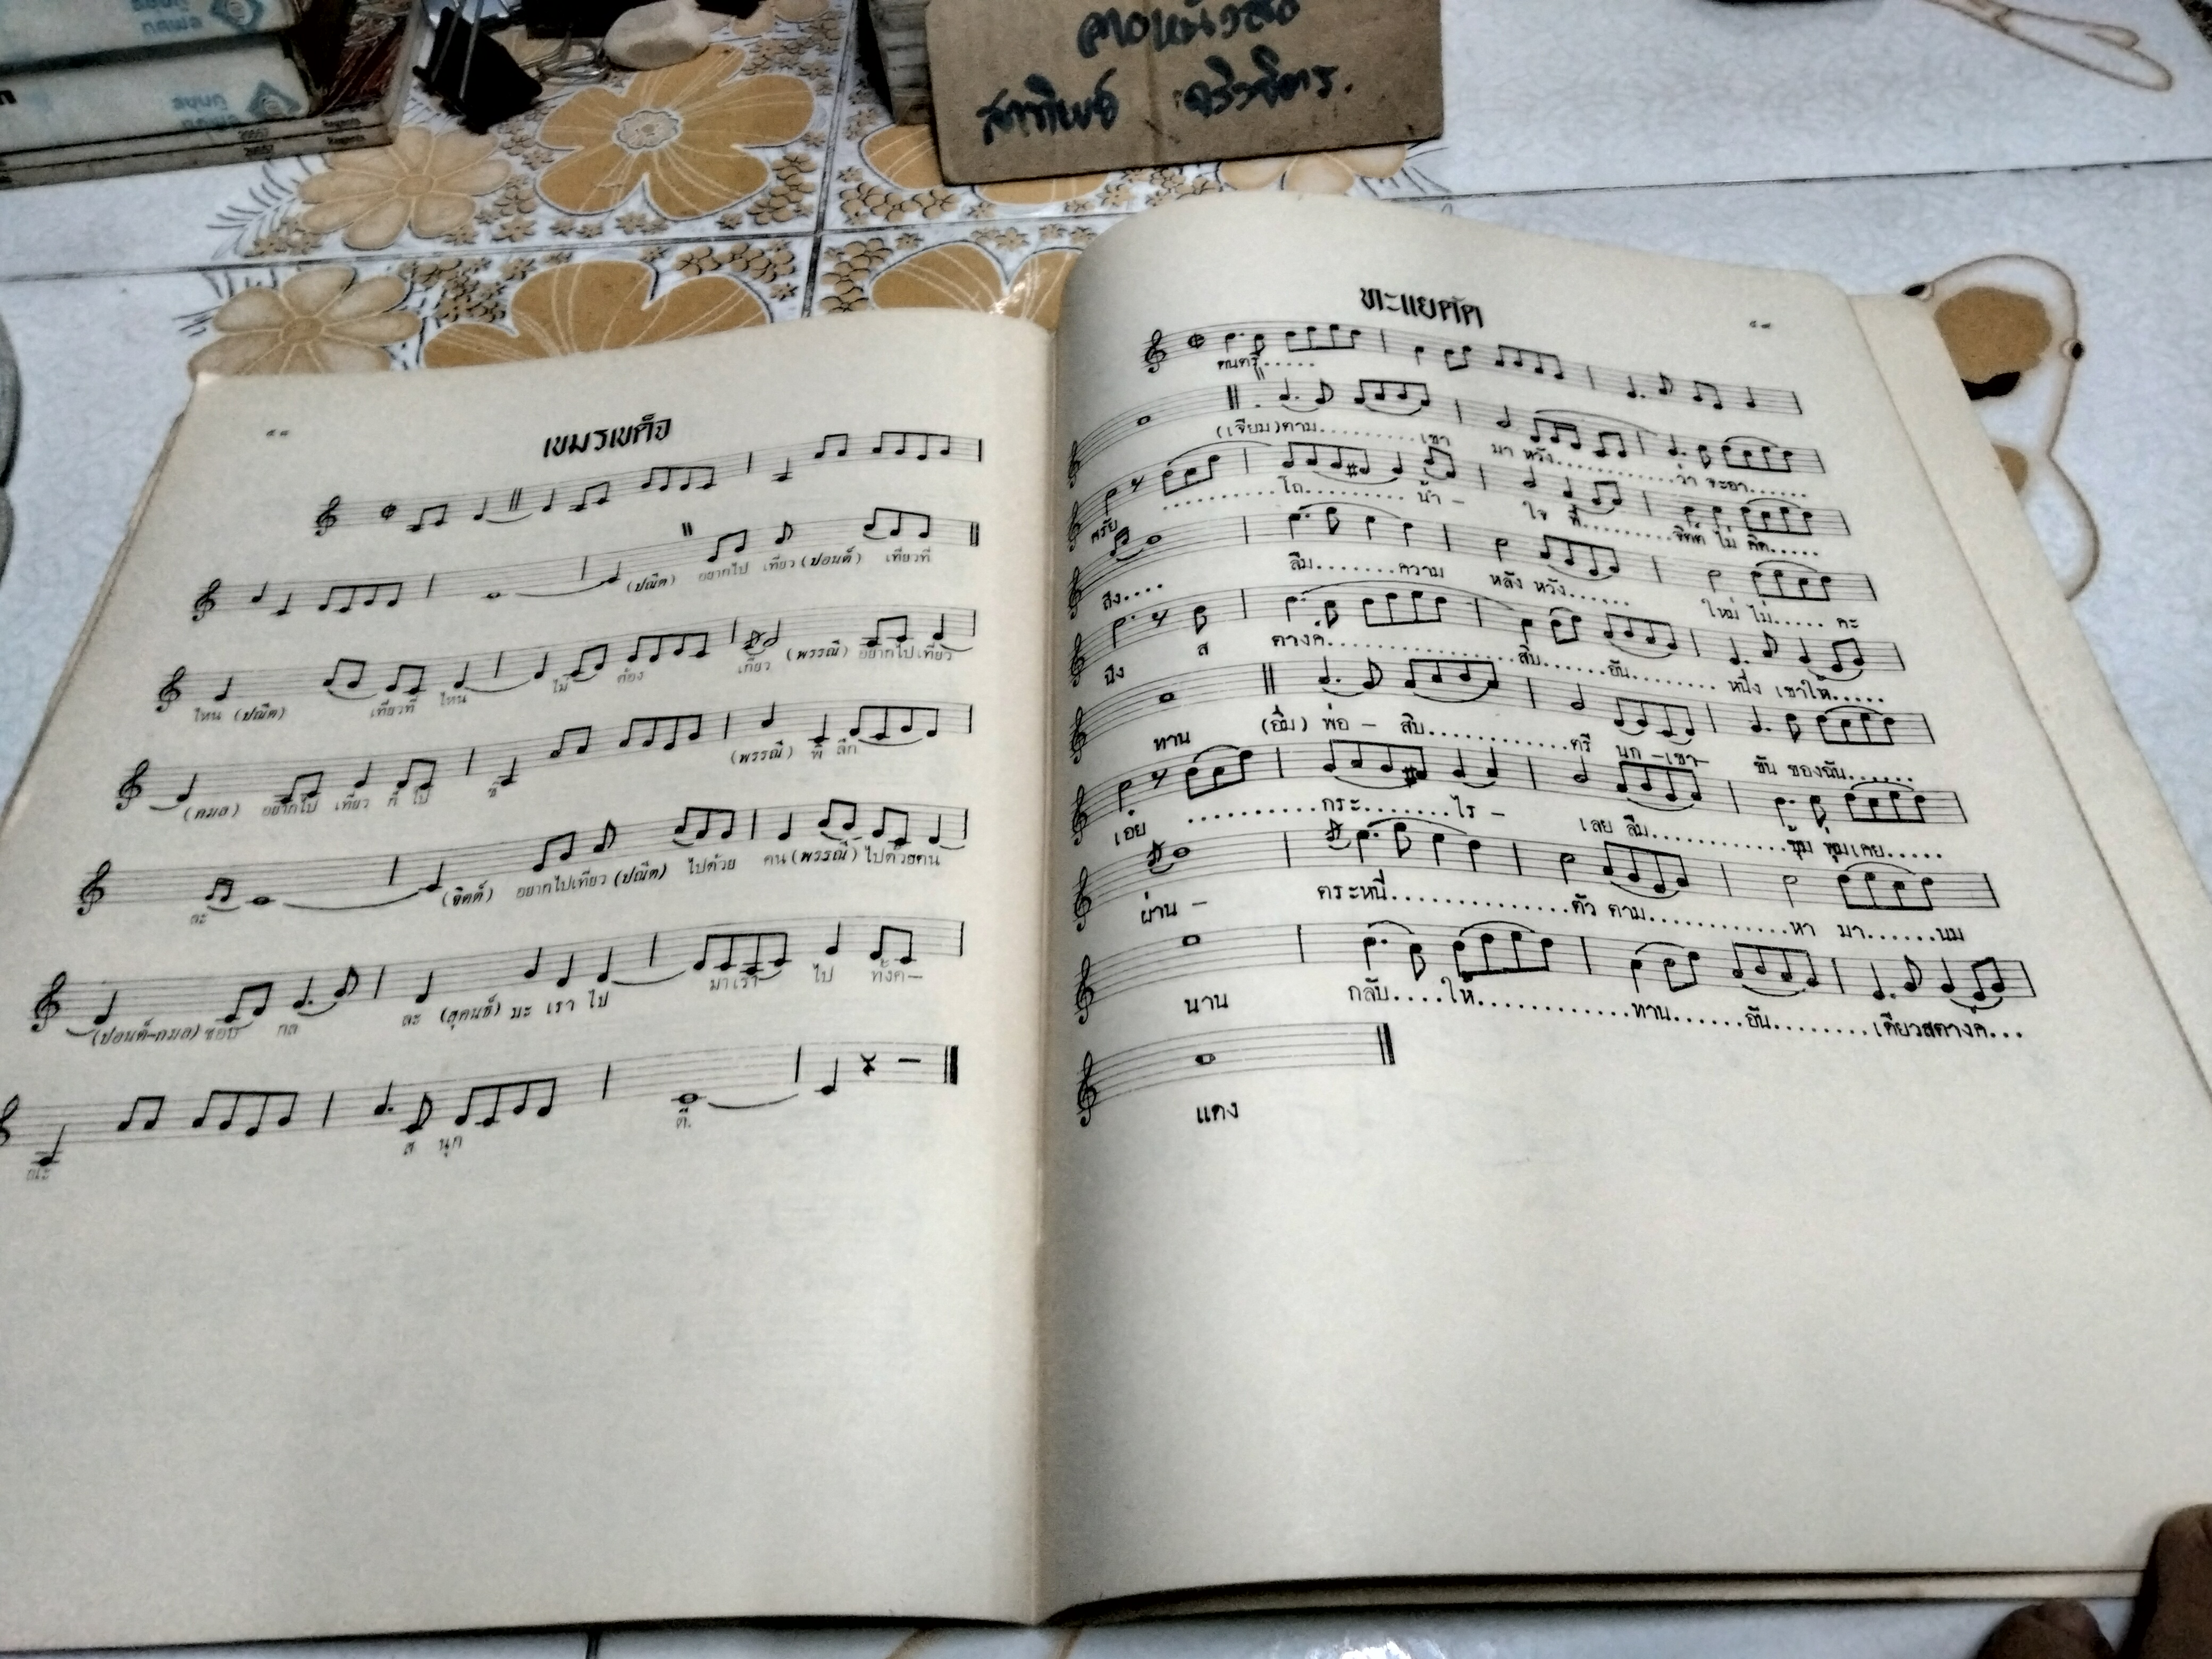 เขมรเขต็จ
(ปณีต) อยากไป เที่ยว (ปอนด์) เที่ยวที่
ไหน (ปณีต) เที่ยวที่ ไหน ไม่ ต้อง เกี่ยว (พรรณี) อยากไปเที่ยว
(กมล) อยากไป เที่ยว ก็ ไป ซิ (พรรณี) พิ ลึก
ละ (จิตต์) อยากไปเที่ยว (ปณีต) ไปด้วย คน (พรรณี) ไปด้วยคน
(ปอนด์-กมล) ชอบ กล ละ (สุคนธ์) มะ เรา ไป มาเรา ไป ทั้งค-
ณะ ส นุก ดี.
ทะแยคัด
ดนตรี......
(เจียม) ตาม.......... เขา มา หวัง............ว่า จะอา......
ศรัย ..........โถ......... น้ำ - ใจ ที่.........จิตต์ ไม่ คิด.....
สง.... ลืม........ความ หลัง หวัง...... ใหม่ ไม่..... คะ
ปึง ส ตางค์..................สิบ......อัน........ หนึ่ง เขาให้.....
ทาน (อิ่ม) พ่อ - สิบ............ตรี นก -เขา- ขัน ของฉัน......
เอ๋ย ..........กระ.......ไร - เลย ลืม............ซุ้ม พุ่มเคย.....
ผ่าน - ตระหนี่...............ตัว ตาม............หา มา.......นม
นาน กลับ....ให้............ทาน......อัน........เดียวสตางค์...
แดง